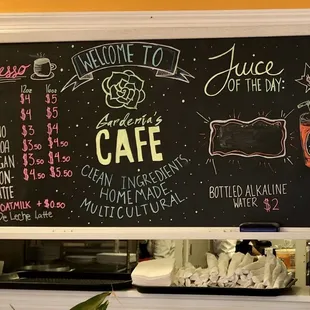 esso
12oz 16oz
$4 $5
$4 $5
$3 $4
$3.50 $4
$3.50 $4.50
$4.50 $5.50
OATMILK +$0.50
De Leche Latte
WELCOME TO
Gardenia's
CAFE
CLEAN INGREDIENTS,
HOMEMADE,
MULTICULTURAL.
Juice
OF THE DAY:
BOTTLED ALKALINE
WATER $2